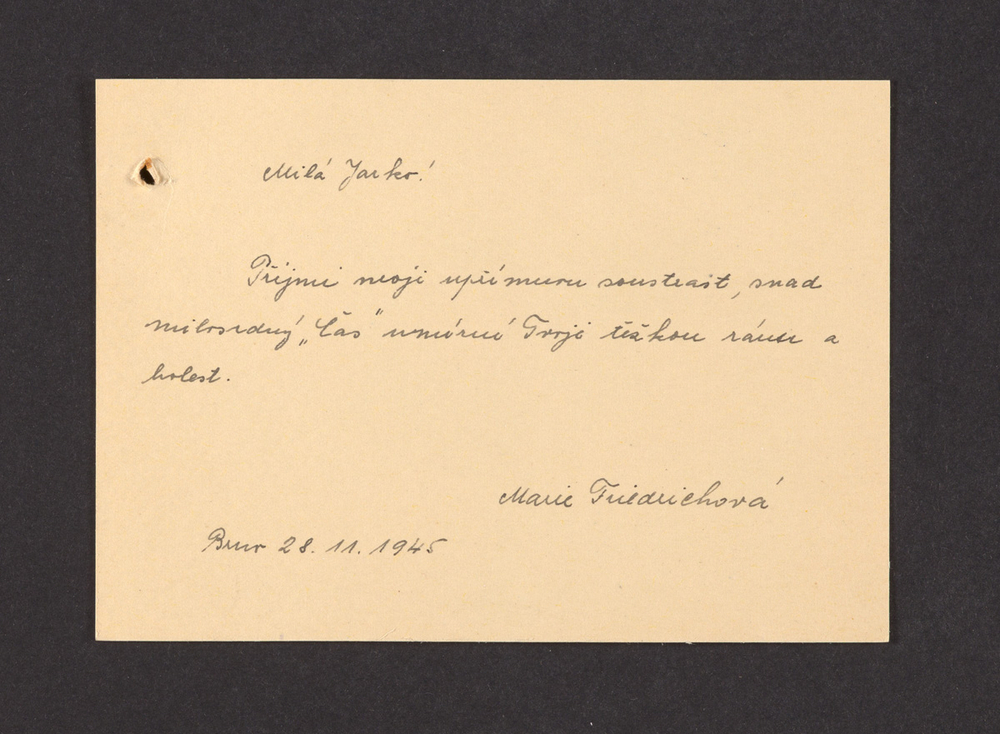 Milá Jarko!
Přijmi moji upřímnou soustrast, snad
milosrdný „Čas“ zmírní Tvoji těžkou ránu a
bolest.
Marie Friedrichová
Brno 28. 11. 1945